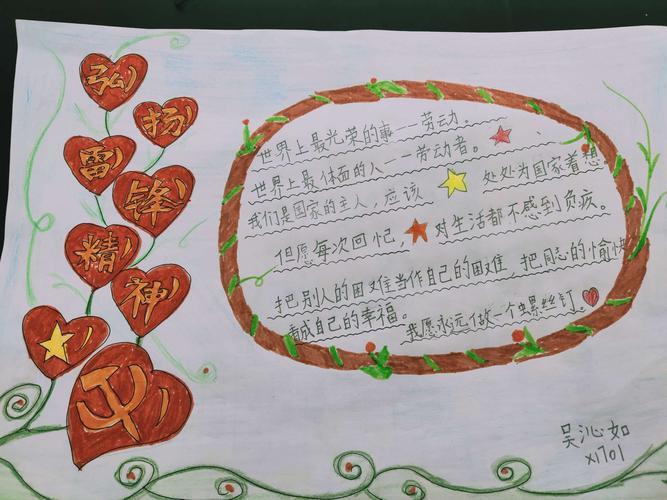 弘扬雷锋精神
世界上最光荣的事——劳动。
世界上最体面的人——劳动者。
我们是国家的主人,应该处处为国家着想。
但愿每次回忆,对生活都不感到负疚。
把别人的困难当作自己的困难,把同志的愉快
看成自己的幸福。
我愿永远做一个螺丝钉。
吴沁如
X1701